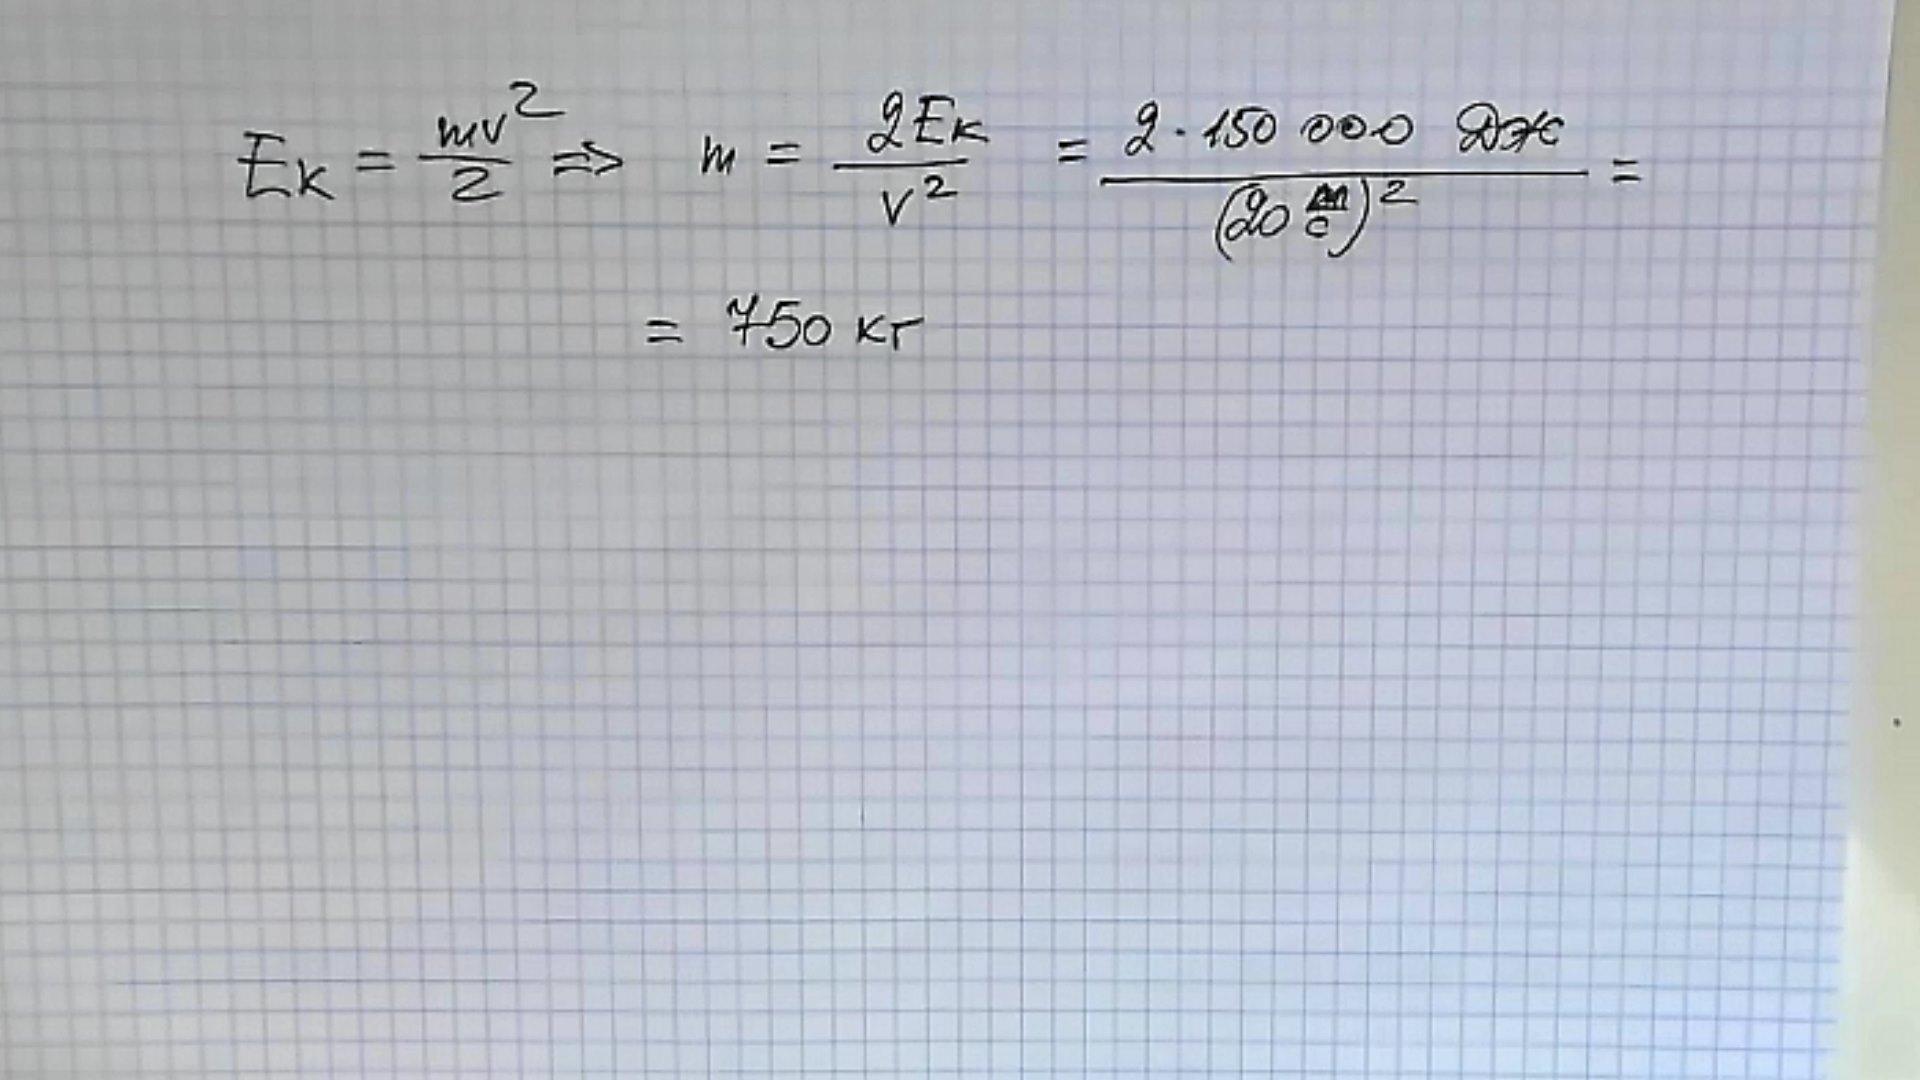 Eк = mv²/2 => m = 2Eк/v² = 2·150 000 Дж/(20 м/с)² =
= 750 кг